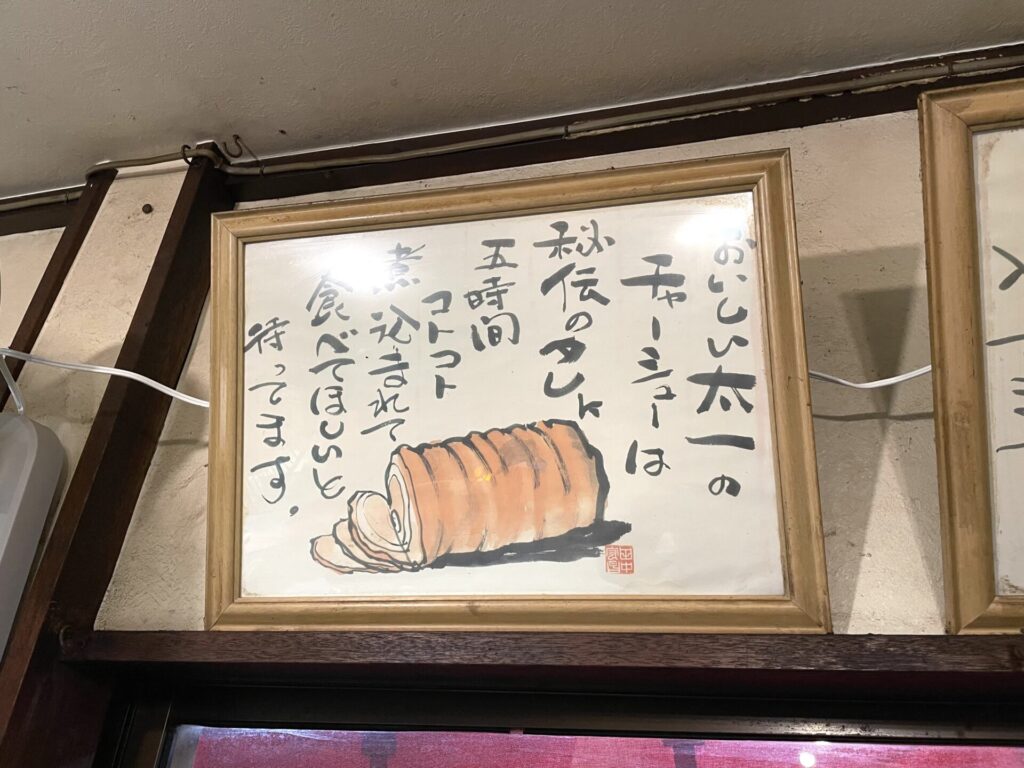 おいしい太一の
チャーシューは
秘伝のタレに
五時間
コトコト
煮込まれて
食べてほしいと
待ってます。